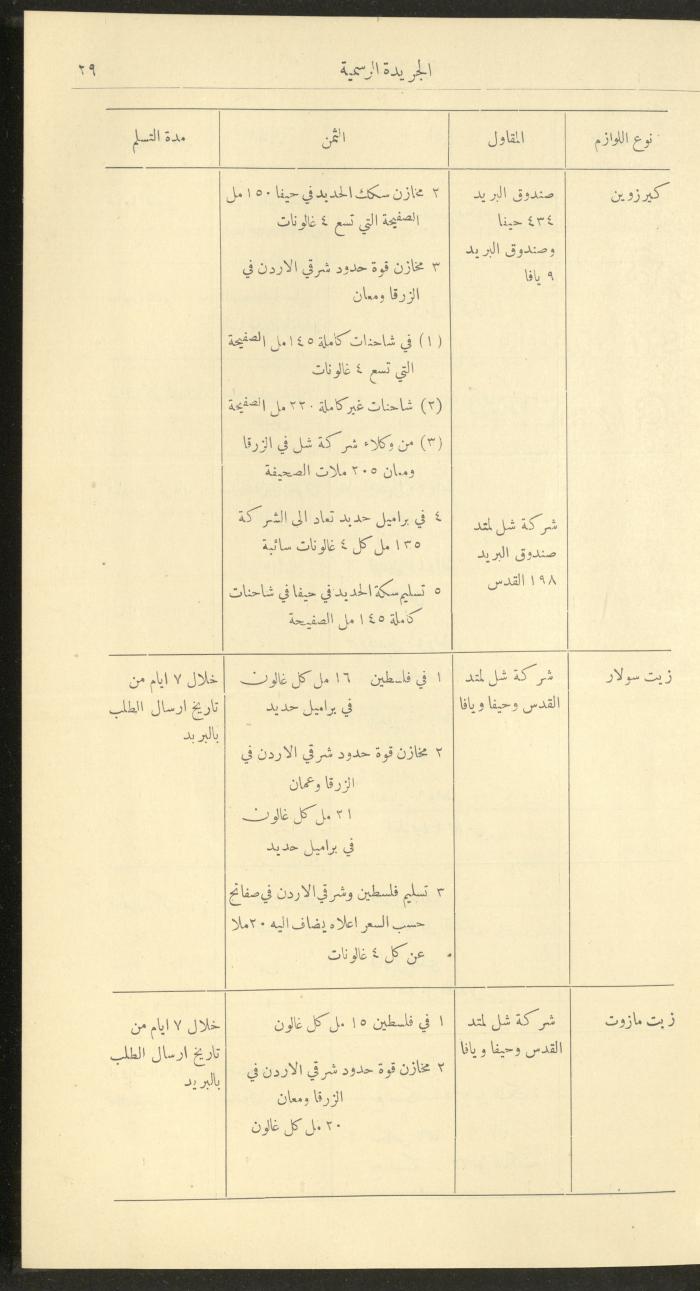 ٢٩
الجريدة الرسمية
نوع اللوازم
المقاول
الثمن
مدة التسلم
كيرزوين
صندوق البريد
٤٣٤ حيفا
وصندوق البريد
٩ يافا
شركة شل لمتد
صندوق البريد
١٩٨ القدس
٢ مخازن سكك الحديد في حيفا ١٥٠ مل
الصفيحة التي تسع ٤ غالونات
٣ مخازن قوة حدود شرقي الاردن في
الزرقا ومعان
(١) في شاحنات كاملة ١٤٥ مل الصفيحة
التي تسع ٤ غالونات
(٢) شاحنات غير كاملة ٢٢٠ مل الصفيحة
(٣) من وكلاء شركة شل في الزرقا
ومعان ٢٠٥ ملات الصحيفة
٤ في براميل حديد تعاد الى الشركة
١٣٥ مل كل ٤ غالونات سائبة
٥ تسليم سكة الحديد في حيفا في شاحنات
كاملة ١٤٥ مل الصفيحة
زيت سولار
شركة شل لمتد
القدس وحيفا ويافا
١ في فلسطين ١٦ مل كل غالون
في براميل حديد
٢ مخازن قوة حدود شرقي الاردن في
الزرقا وعمان
٢١ مل كل غالون
في براميل حديد
٣ تسليم فلسطين وشرقي الاردن في صفائح
حسب السعر اعلاه يضاف اليه ٢٠ ملا
عن كل ٤ غالونات
خلال ٧ ايام من
تاريخ ارسال الطلب
بالبريد
زيت مازوت
شركة شل لمتد
القدس وحيفا ويافا
١ في فلسطين ١٥ مل كل غالون
٢ مخازن قوة حدود شرقي الاردن في
الزرقا ومعان
٢٠ مل كل غالون
خلال ٧ ايام من
تاريخ ارسال الطلب
بالبريد